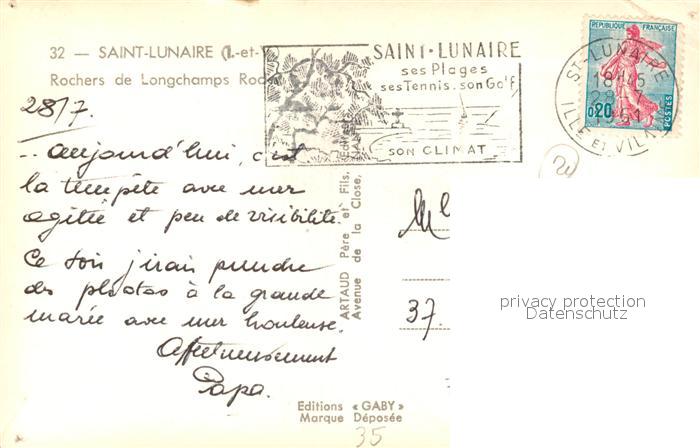 32 — SAINT-LUNAIRE (I.-et-
Rochers de Longchamps
28/7.
... aujourd'hui, c'est
la tempête avec mer
agitée et peu de visibilité.
Ce soir j'irais prendre
des photos à la grande
marée avec mer houleuse.
Affectueusement
Papa.
SAINT-LUNAIRE
ses Plages
ses Tennis. son Golf
SON CLIMAT
REPUBLIQUE FRANÇAISE
0,20
POSTES
ST-LUNAIRE
18H45
28-7
ILLE ET VILNE
ARTAUD Père et Fils,
Avenue de la Close,
Mle
37.
privacy protection
Datenschutz
Editions « GABY »
Marque Déposée
35